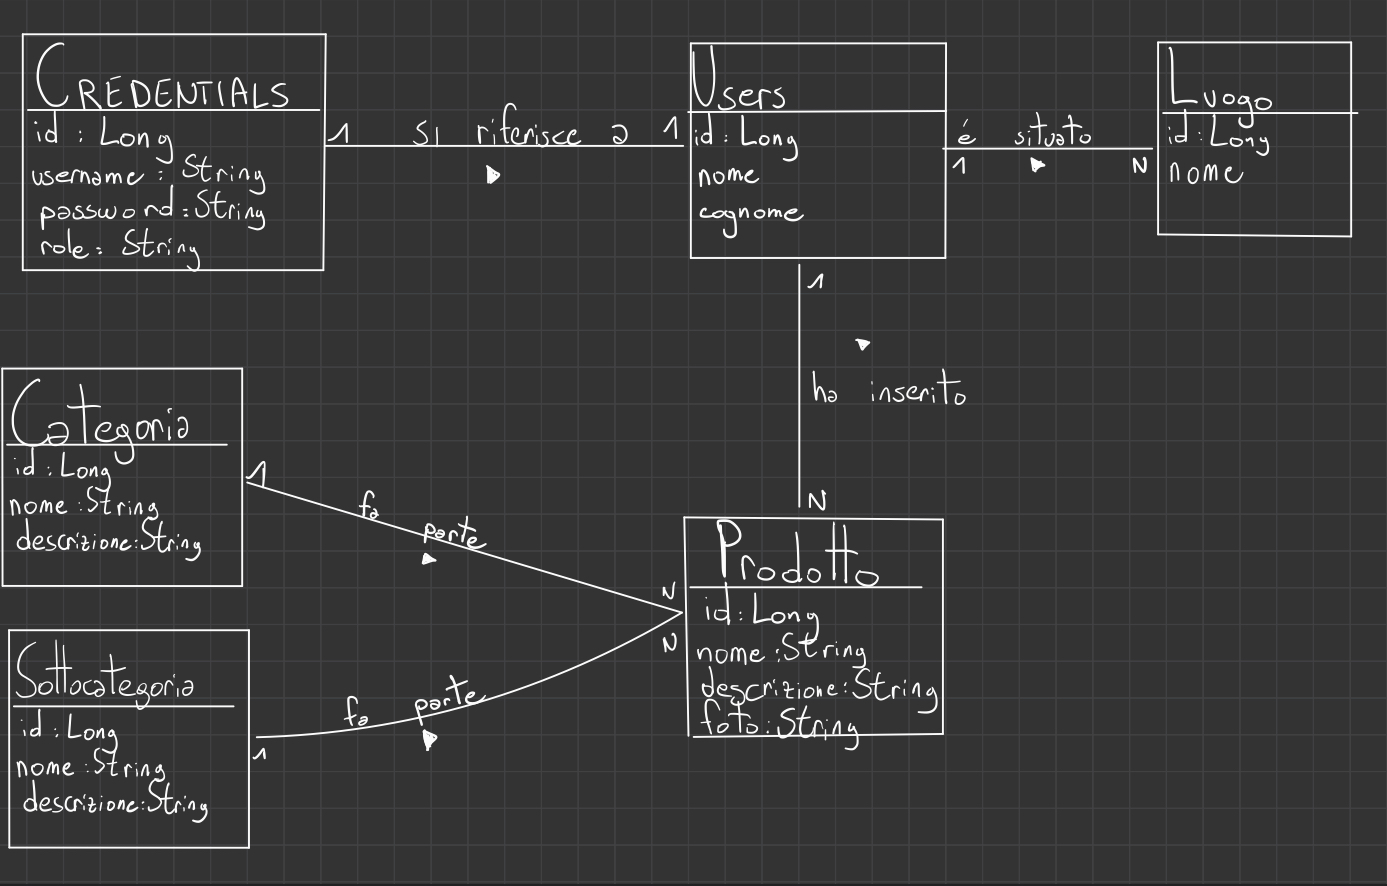 CREDENTIALS
id : Long
username : String
password : String
role : String
1 si riferisce a 1
Users
id : Long
nome
cognome
é situato
1 N
Luogo
id : Long
nome
1
ha inserito
N
Categoria
id : Long
nome : String
descrizione : String
1 fa parte N
Sottocategoria
id : Long
nome : String
descrizione : String
1 fa parte N
Prodotto
id : Long
nome : String
descrizione : String
foto : String